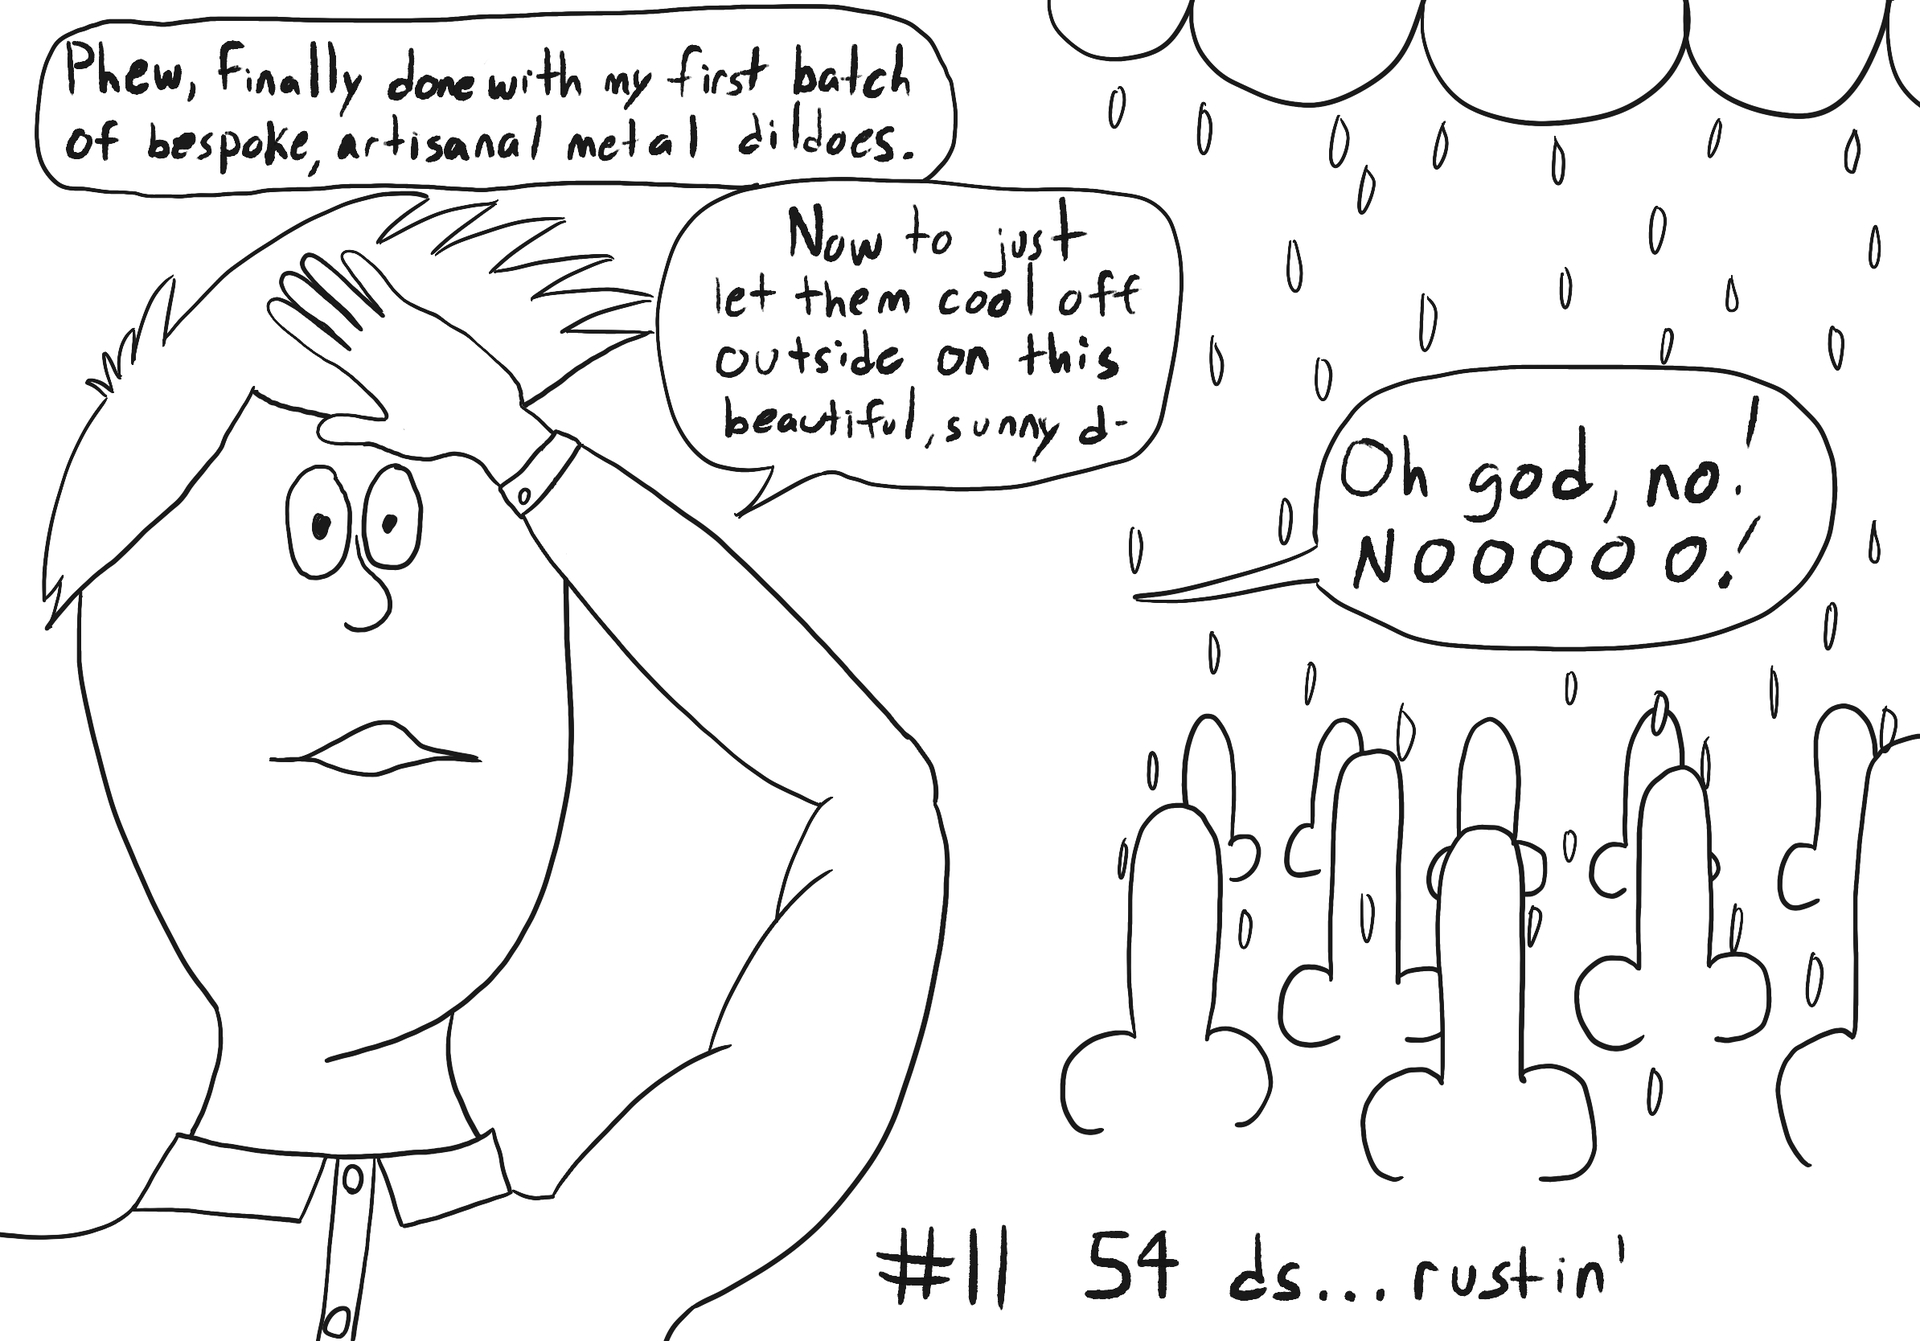 Phew, finally done with my first batch
of bespoke, artisanal metal dildoes.
Now to just
let them cool off
outside on this
beautiful, sunny d-
Oh god, no!
NOOOOO!
#11 54 ds... rustin'